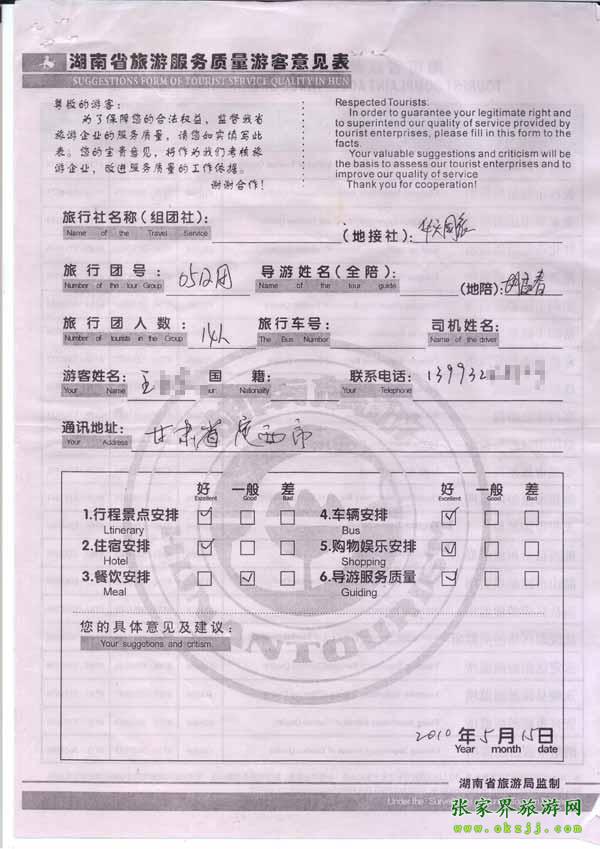 湖南省旅游服务质量游客意见表
SUGGESTIONS FORM OF TOURIST SERVICE QUALITY IN HUN
尊敬的游客：
为了保障您的合法权益，监督我省
旅游企业的服务质量，请您如实填写此
表。您的宝贵意见，将作为我们考核旅
游企业，改进服务质量的工作依据。
谢谢合作！
Respected Tourists:
In order to guarantee your legitimate right and
to superintend our quality of service provided by
tourist enterprises, please fill in this form to the
facts.
Your valuable suggestions and criticism will be
the basis to assess our tourist enterprises and to
improve our quality of service
Thank you for cooperation!
旅行社名称(组团社): (地接社): 华天国旅
Name of the Travel Service
旅行团号: 导游姓名(全陪): (地陪):
Number of the tour Group Name of the tour guide
旅行团人数: 14人 旅行车号: 司机姓名:
Number of tourists in the Group The Bus Number Name of the driver
游客姓名: 王 国籍: 联系电话: 139932
Your Name our Nationality Your Telephone
通讯地址: 甘肃省定西市
Your Address
好 一般 差 好 一般 差
Excellent Good Bad Excellent Good Bad
1.行程景点安排 4.车辆安排
Ltinerary Bus
2.住宿安排 5.购物娱乐安排
Hotel Shopping
3.餐饮安排 6.导游服务质量
Meal Guiding
您的具体意见及建议:
Your suggotions and critism.
2010 年 5 月 15 日
Year month date
湖南省旅游局监制
Under the Surve
张家界旅游网
www.okzjj.com